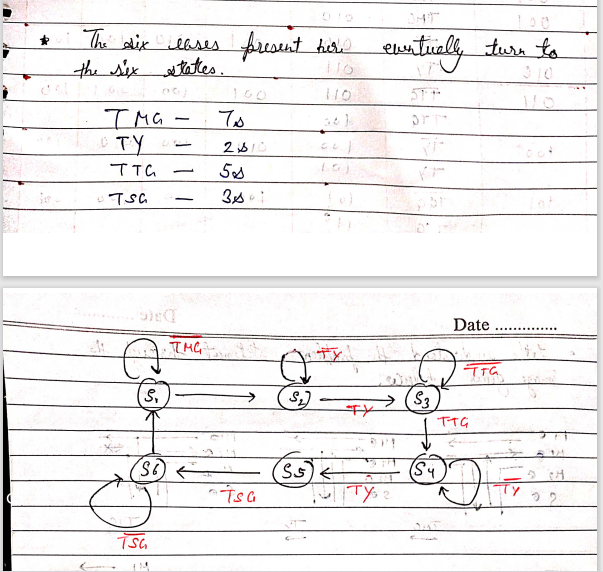 * The six cases present here eventually turn to
the six states.
TMG — 7s
TY — 2s
TTG — 5s
TSG — 3s
Date ..............
T̅M̅G̅ T̅Y̅ T̅T̅G̅
S1 S2 TY S3
TTG
S6 TSG S5 TY S4 T̅Y̅
T̅S̅G̅